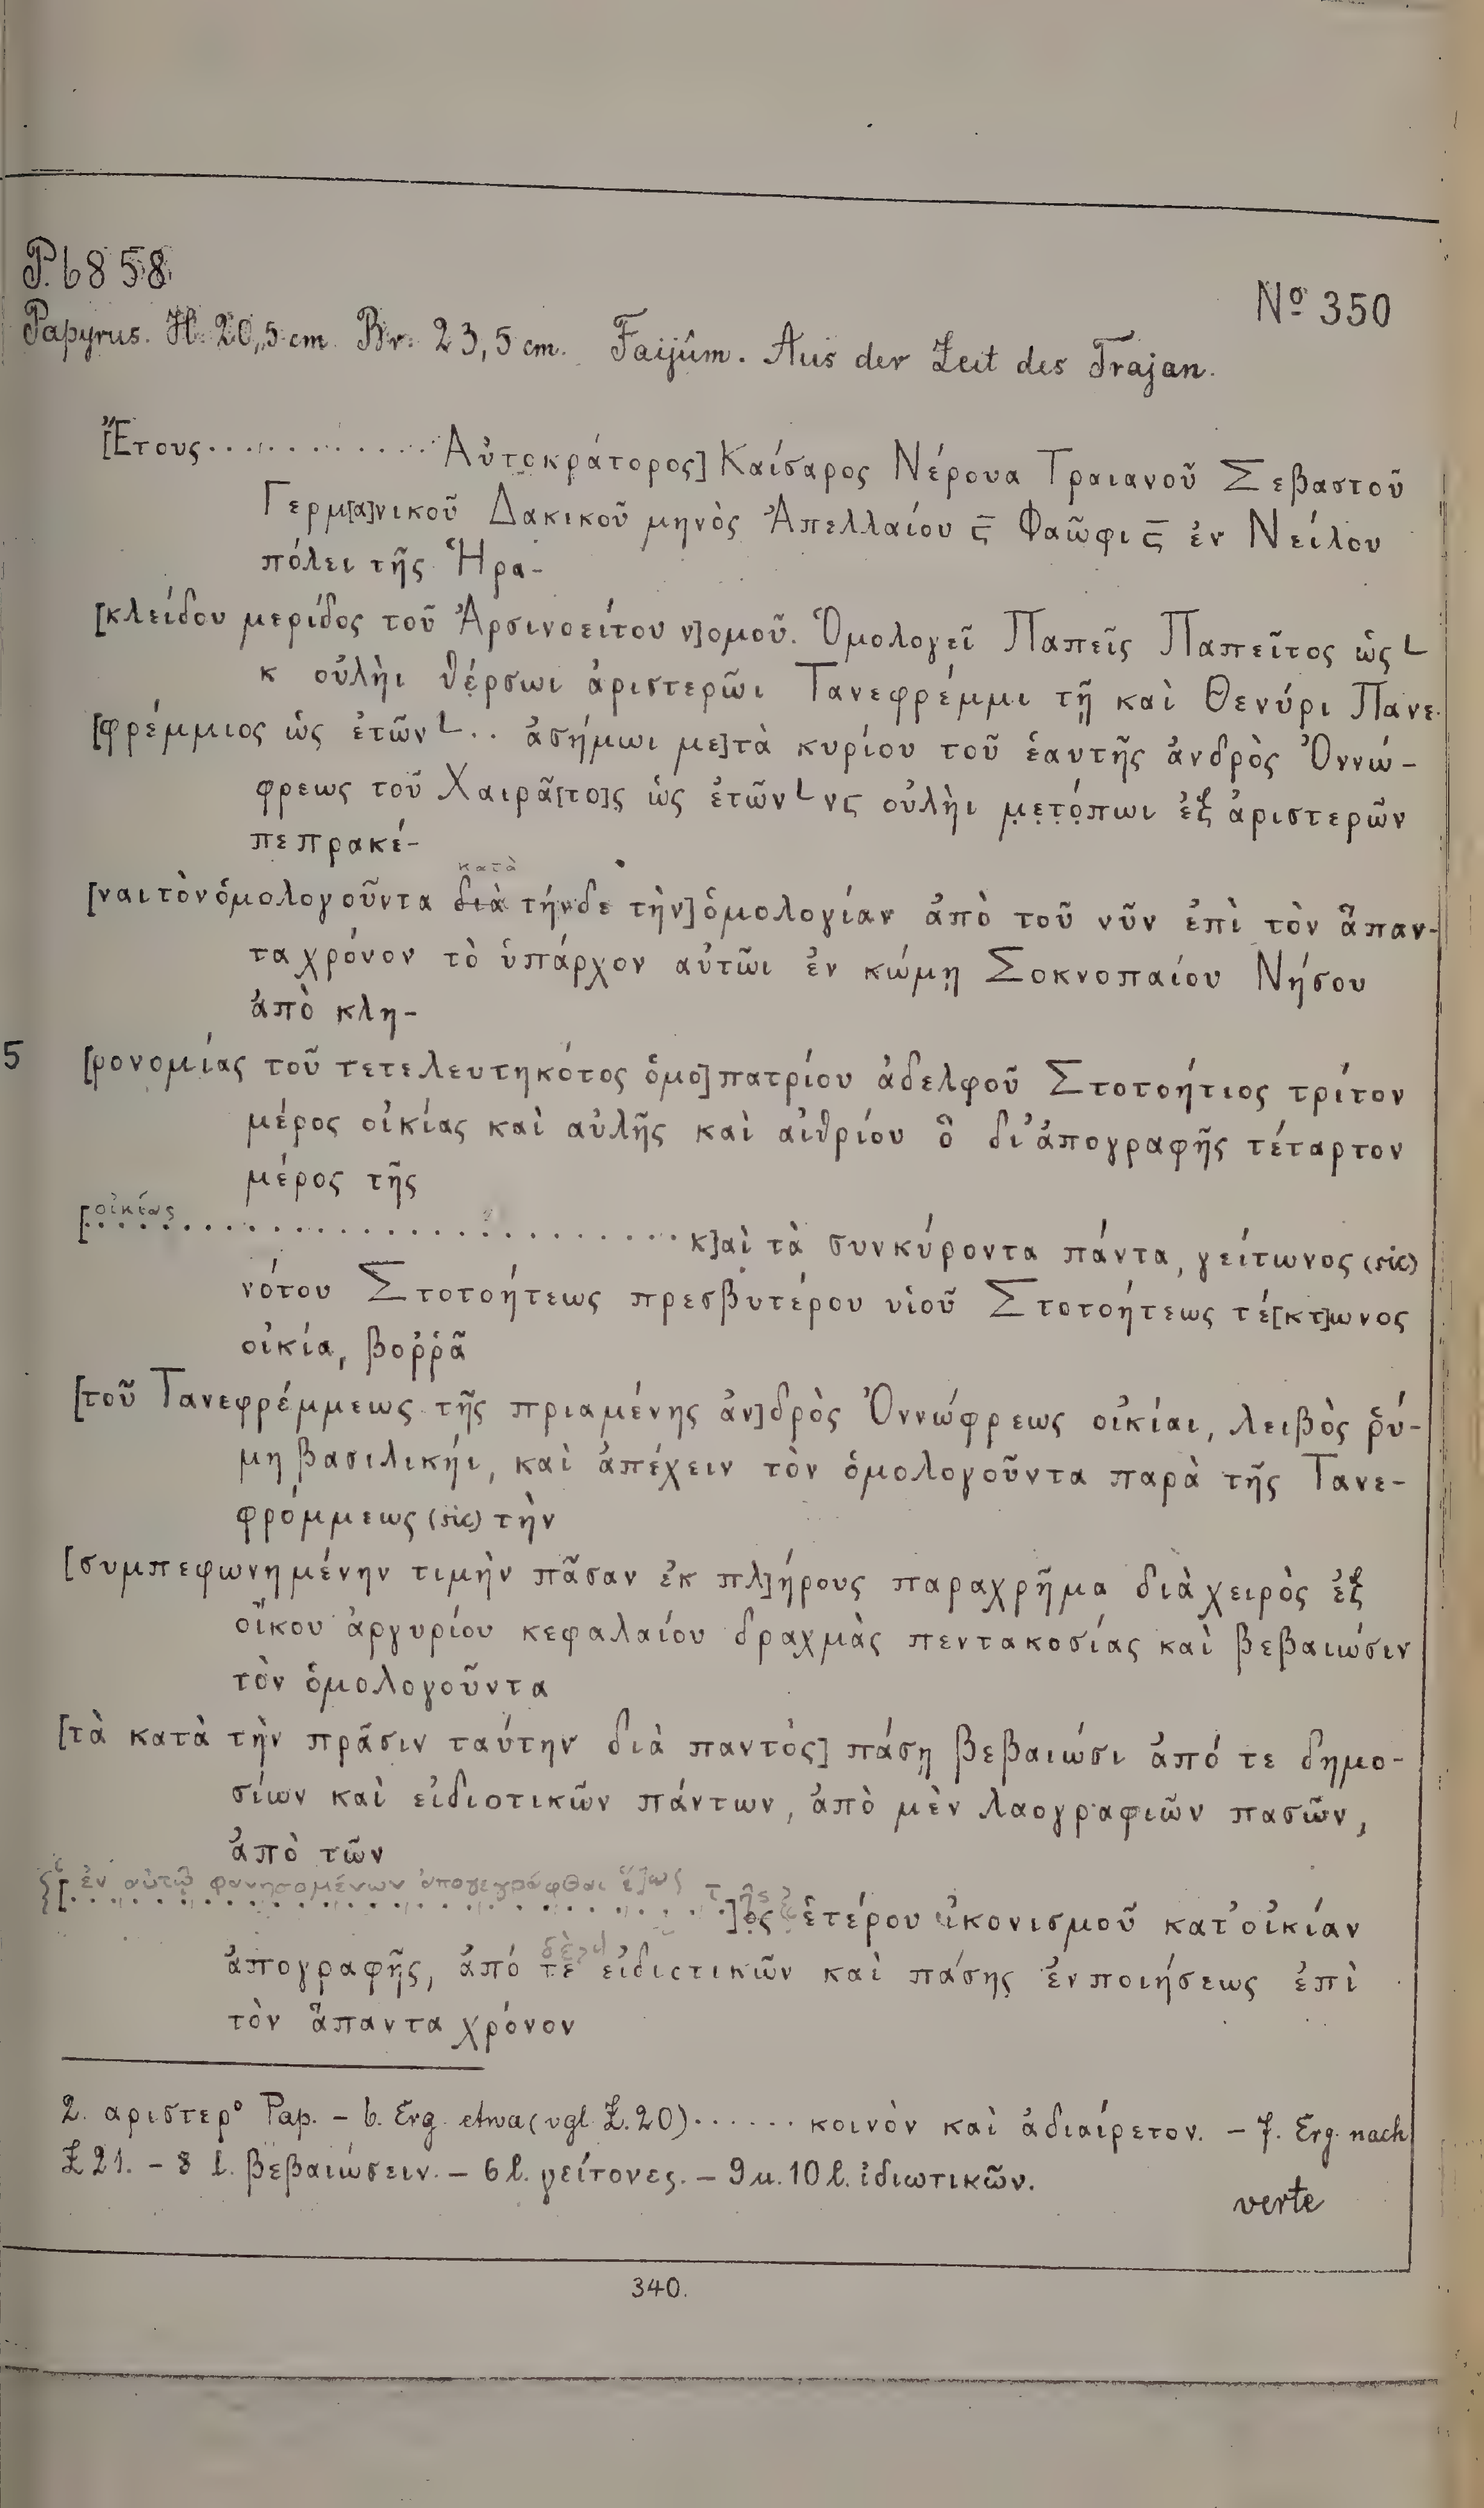 P. 6858
Nº 350
Papyrus. H. 20,5 cm. Br. 23,5 cm. Faijûm. Aus der Zeit des Trajan.
[Ἔτους ............ Αὐτοκράτορος] Καίσαρος Νέρουα Τραιανοῦ Σεβαστοῦ
Γερμ[α]νικοῦ Δακικοῦ μηνὸς Ἀπελλαίου ϛ̅ Φαῶφι ϛ̅ ἐν Νείλου
πόλει τῆς Ἡρα-
[κλείδου μερίδος τοῦ Ἀρσινοείτου ν]ομοῦ. Ὁμολογεῖ Παπεῖς Παπεῖτος ὡς L
κ οὐλὴι θέρσωι ἀριστερῶι Τανεφρέμμι τῇ καὶ Θενύρι Πανε-
[φρέμμιος ὡς ἐτῶν L .. ἀσήμωι με]τὰ κυρίου τοῦ ἑαυτῆς ἀνδρὸς Ὀννώ-
φρεως τοῦ Χαιρᾶ[το]ς ὡς ἐτῶν L νϛ οὐλὴι μ̣ε̣τ̣ό̣πωι ἐξ ἀριστερῶν
πεπρακέ-
κατὰ
[ναι τὸν ὁμολογοῦντα διὰ τήνδε τὴν] ὁμολογίαν ἀπὸ τοῦ νῦν ἐπὶ τὸν ἅπαν-
τα χρόνον τὸ ὑπάρχον αὐτῶι ἐν κώμῃ Σοκνοπαίου Νήσου
ἀπὸ κλη-
5 [ρονομίας τοῦ τετελευτηκότος ὁμο]πατρίου ἀδελφοῦ Στοτοήτιος τρίτον
μέρος οἰκίας καὶ αὐλῆς καὶ αἰθρίου ὃ δι' ἀπογραφῆς τέταρτον
μέρος τῆς
οἰκίας
[.............................. κ]αὶ τὰ συνκύροντα πάντα, γείτωνος (sic)
νότου Στοτοήτεως πρεσβυτέρου υἱοῦ Στοτοήτεως τέ[κτ]ωνος
οἰκία, βοῤῥᾶ
[τοῦ Τανεφρέμμεως τῆς πριαμένης ἀν]δρὸς Ὀννώφρεως οἰκίαι, λειβὸς ῥύ-
μη βασιλικήι, καὶ ἀπέχειν τὸν ὁμολογοῦντα παρὰ τῆς Τανε-
φρόμμεως (sic) τὴν
[συμπεφωνημένην τιμὴν πᾶσαν ἐκ πλ]ήρους παραχρῆμα διὰ χειρὸς ἐξ
οἴκου ἀργυρίου κεφαλαίου δραχμὰς πεντακοσίας καὶ βεβαιώσιν
τὸν ὁμολογοῦντα
[τὰ κατὰ τὴν πρᾶσιν ταύτην διὰ παντὸς] πάσῃ βεβαιώσι ἀπό τε δημο-
σίων καὶ εἰδιοτικῶν πάντων, ἀπὸ μὲν λαογραφιῶν πασῶν,
ἀπὸ τῶν
ἐν αὐτῷ φανησομένων ἀπογεγράφθαι ἕ]ως τῆς
[..............................]ο̣ς ἑτέρου ἰκονισμοῦ κατ' οἰκίαν
δὲ
ἀπογραφῆς, ἀπό τε εἰδιοτικῶν καὶ πάσης ἐνποιήσεως ἐπὶ
τὸν ἅπαντα χρόνον
2. αριστερ° Pap. – 6. Erg. etwa (vgl. Z. 20) ...... κοινὸν καὶ ἀδιαίρετον. – 7. Erg. nach
Z 21. – 8 l. βεβαιώσειν. – 6 l. γείτονες. – 9 u. 10 l. ἰδιωτικῶν.
verte
340.